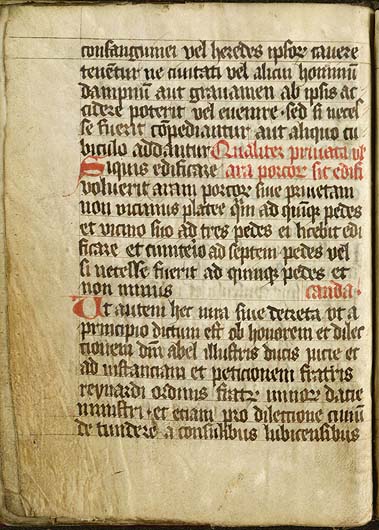 consanguinei vel heredes ipsoꝝ cauere
tenētur ne ciuitati vel alicui hominū
dampnū aut grauamen ab ipsis ac
cidere poterit vel euenire · sed si neces
se fuerit cōpediantur aut aliquo cu
biculo addantur Qualiter priuata ul̓
Siquis edificare ara porcoꝝ sit edifi
voluerit aram porcoꝝ siue priuetam
non vicinius platee qͣm ad quīqꝫ pedes
et vicino suo ad tres pedes ei licebit edi
ficare et cimiterio ad septem pedes vel
si necesse fuerit ad quinqꝫ pedes et
non minus canda ·
Ut autem hec iura siue decreta vt a
principio dictum est ob honorem et dilec
tionem dn̄i abel illustris ducis iucie et
ad instanciam et peticionem fratris
reynardi ordinis fratrū minoꝝ dacie
ministri · et etiam pro dilectione ciuiū
de tundere a consulibus lubicensibus